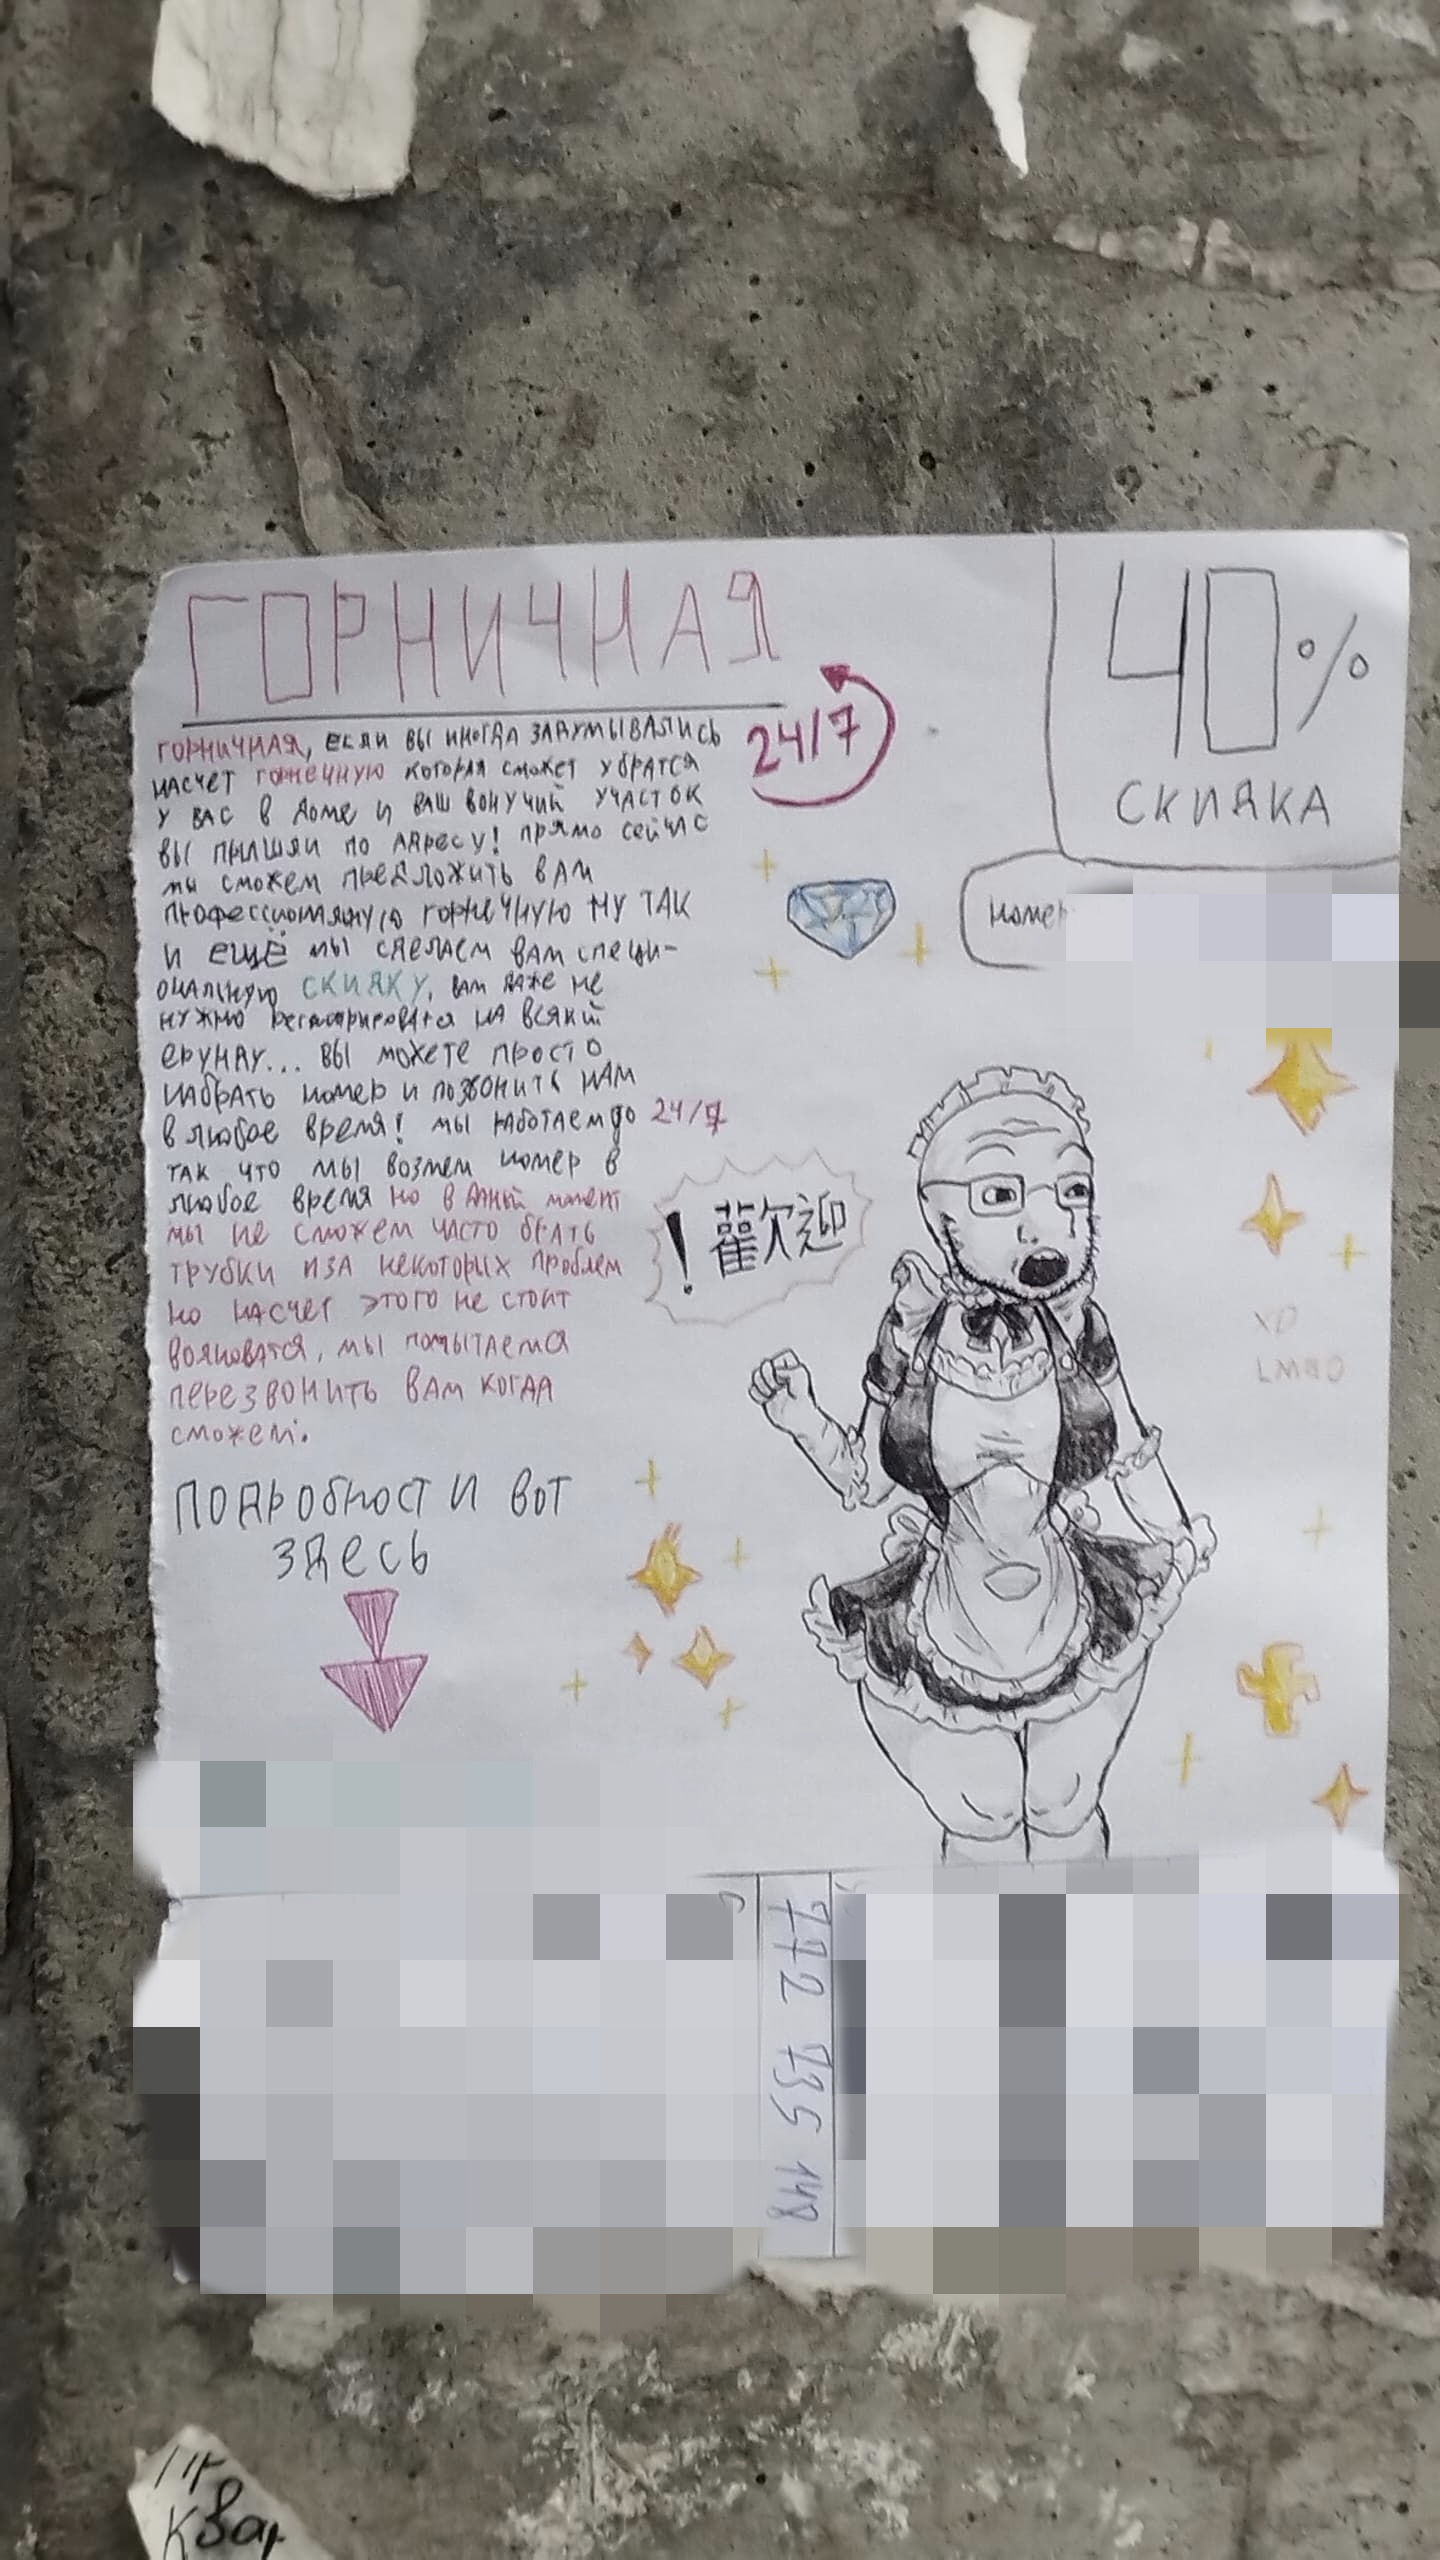 ГОРНИЧНАЯ
24/7
40%
СКИДКА
ГОРНИЧНАЯ, ЕСЛИ ВЫ ИНОГДА ЗАДУМЫВАЛИСЬ
НАСЧЕТ ГОРНЕЧНУЮ КОТОРАЯ СМОЖЕТ УБРАТСЯ
У ВАС В ДОМЕ И ВАШ ВОНУЧИЙ УЧАСТОК
ВЫ ПО АДРЕСУ! ПРЯМО СЕЙЧАС
МЫ СМОЖЕМ ПРЕДЛОЖИТЬ ВАМ
ГОРНЕЧНУЮ НУ ТАК
И ЕЩЁ МЫ СДЕЛАЕМ ВАМ СПЕЦИ-
ОНАЛЬНУЮ СКИДКУ, ВАМ ДАЖЕ НЕ
НУЖНО НА ВСЯКИЙ
ЕРУНДУ... ВЫ МОЖЕТЕ ПРОСТО
НАБРАТЬ НОМЕР И ПОЗВОНИТЬ НАМ
В ЛЮБОЕ ВРЕМЯ! МЫ РАБОТАЕМ ДО 24/7
ТАК ЧТО МЫ ВОЗМЕМ НОМЕР В
ЛЮБОЕ ВРЕМЯ НО В
МЫ НЕ СМОЖЕМ ЧАСТО БРАТЬ
ТРУБКИ ИЗА НЕКОТОРЫХ ПРОБЛЕМ
НО НАСЧЕТ ЭТОГО НЕ СТОИТ
ВОЛНОВАТСЯ, МЫ ПОПЫТАЕМСЯ
ПЕРЕЗВОНИТЬ ВАМ КОГДА
СМОЖЕМ.
ПОДРОБНОСТИ ВОТ
ЗДЕСЬ
номер
! 歡迎
XD
LMBO
772 735 148
Ква